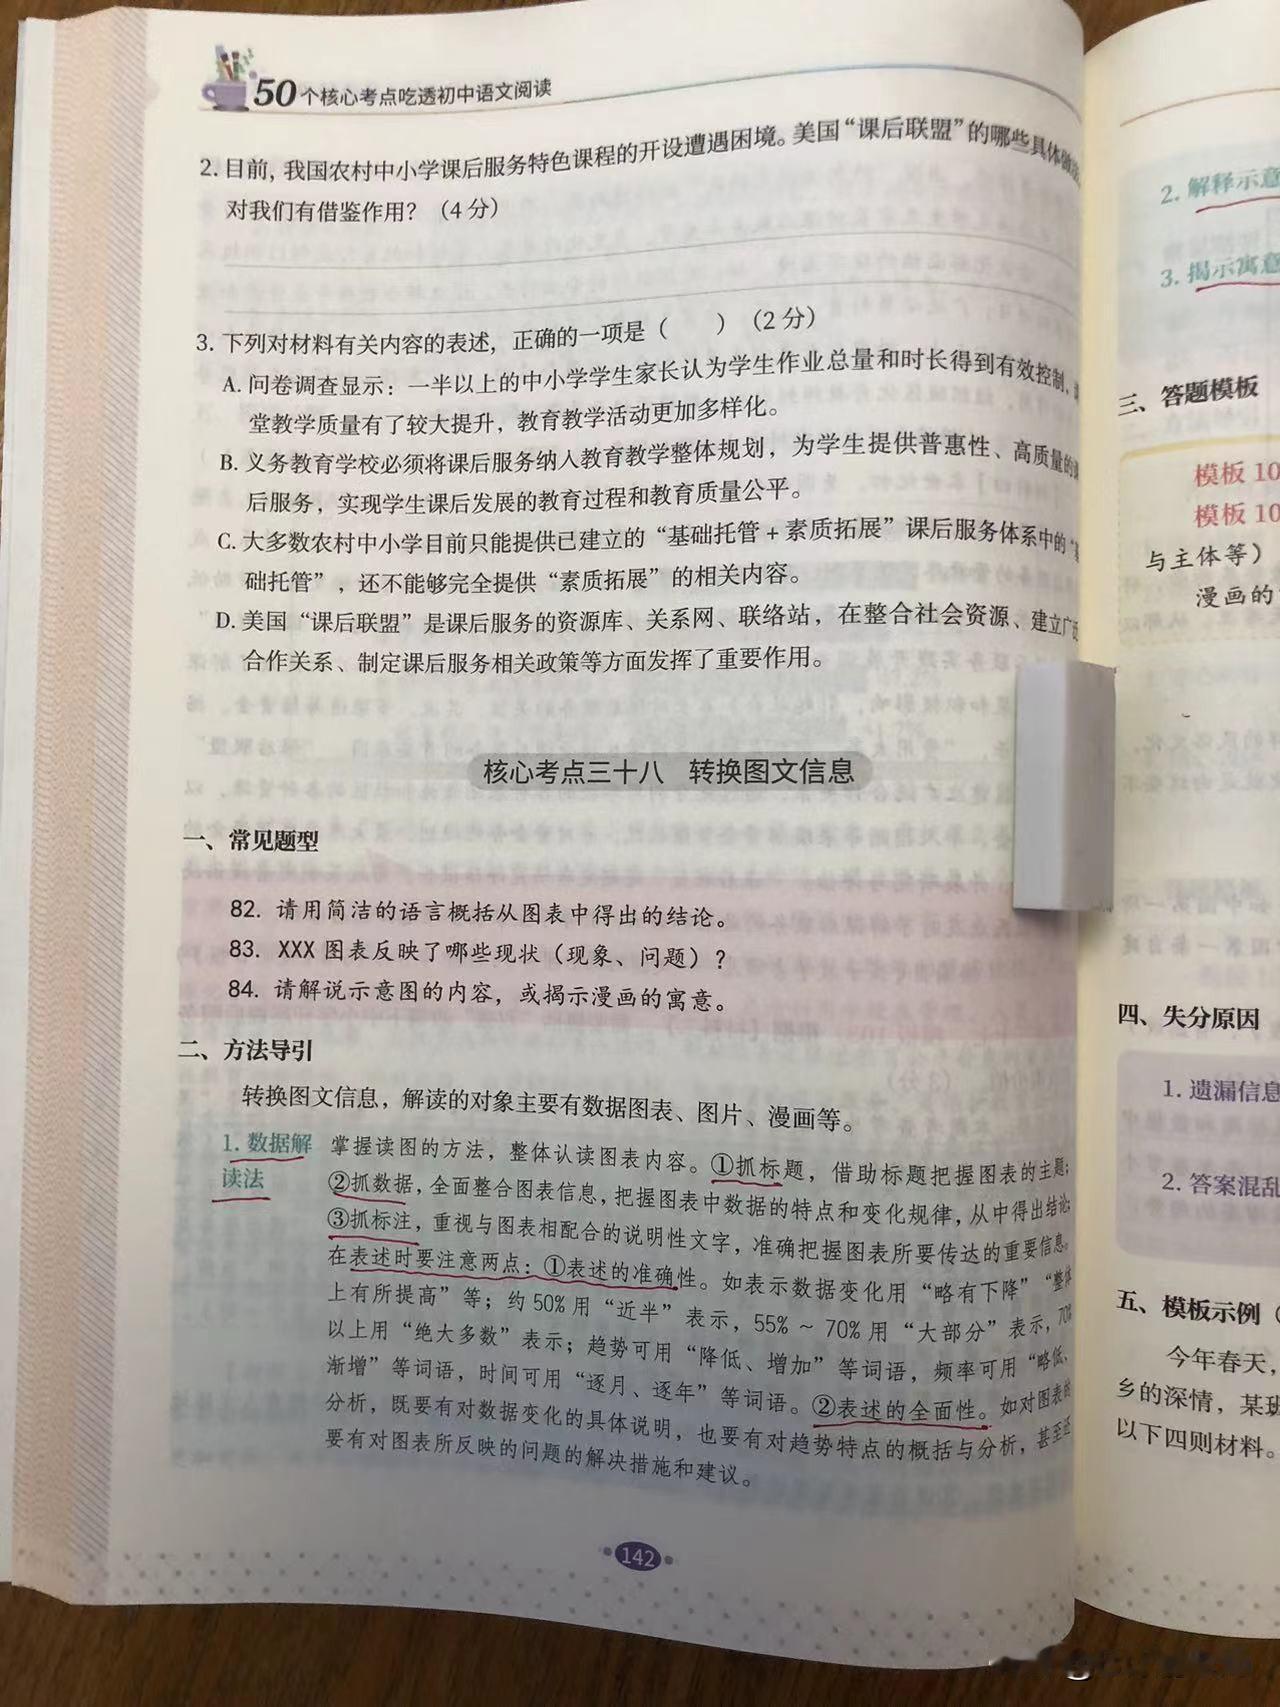 50个核心考点吃透初中语文阅读
2. 目前，我国农村中小学课后服务特色课程的开设遭遇困境。美国“课后联盟”的哪些具体做法，
对我们有借鉴作用？（4分）
3. 下列对材料有关内容的表述，正确的一项是（　　）（2分）
A. 问卷调查显示：一半以上的中小学学生家长认为学生作业总量和时长得到有效控制，课
堂教学质量有了较大提升，教育教学活动更加多样化。
B. 义务教育学校必须将课后服务纳入教育教学整体规划，为学生提供普惠性、高质量的课
后服务，实现学生课后发展的教育过程和教育质量公平。
C. 大多数农村中小学目前只能提供已建立的“基础托管+素质拓展”课后服务体系中的“基
础托管”，还不能够完全提供“素质拓展”的相关内容。
D. 美国“课后联盟”是课后服务的资源库、关系网、联络站，在整合社会资源、建立广泛
合作关系、制定课后服务相关政策等方面发挥了重要作用。
核心考点三十八　转换图文信息
一、常见题型
82. 请用简洁的语言概括从图表中得出的结论。
83. XXX图表反映了哪些现状（现象、问题）？
84. 请解说示意图的内容，或揭示漫画的寓意。
二、方法导引
转换图文信息，解读的对象主要有数据图表、图片、漫画等。
1. 数据解
读法
掌握读图的方法，整体认读图表内容。①抓标题，借助标题把握图表的主题；
②抓数据，全面整合图表信息，把握图表中数据的特点和变化规律，从中得出结论；
③抓标注，重视与图表相配合的说明性文字，准确把握图表所要传达的重要信息。
在表述时要注意两点：①表述的准确性。如表示数据变化用“略有下降”“整体
上有所提高”等；约50%用“近半”表示，55%～70%用“大部分”表示，70%
以上用“绝大多数”表示；趋势可用“降低、增加”等词语，频率可用“略低、
渐增”等词语，时间可用“逐月、逐年”等词语。②表述的全面性。如对图表的
分析，既要有对数据变化的具体说明，也要有对趋势特点的概括与分析，甚至还
要有对图表所反映的问题的解决措施和建议。
142
2. 解释示意
3. 揭示寓意
三、答题模板
模板 10
模板 10
与主体等）
漫画的
四、失分原因
1. 遗漏信息
2. 答案混乱
五、模板示例（
今年春天，
乡的深情，某班
以下四则材料。